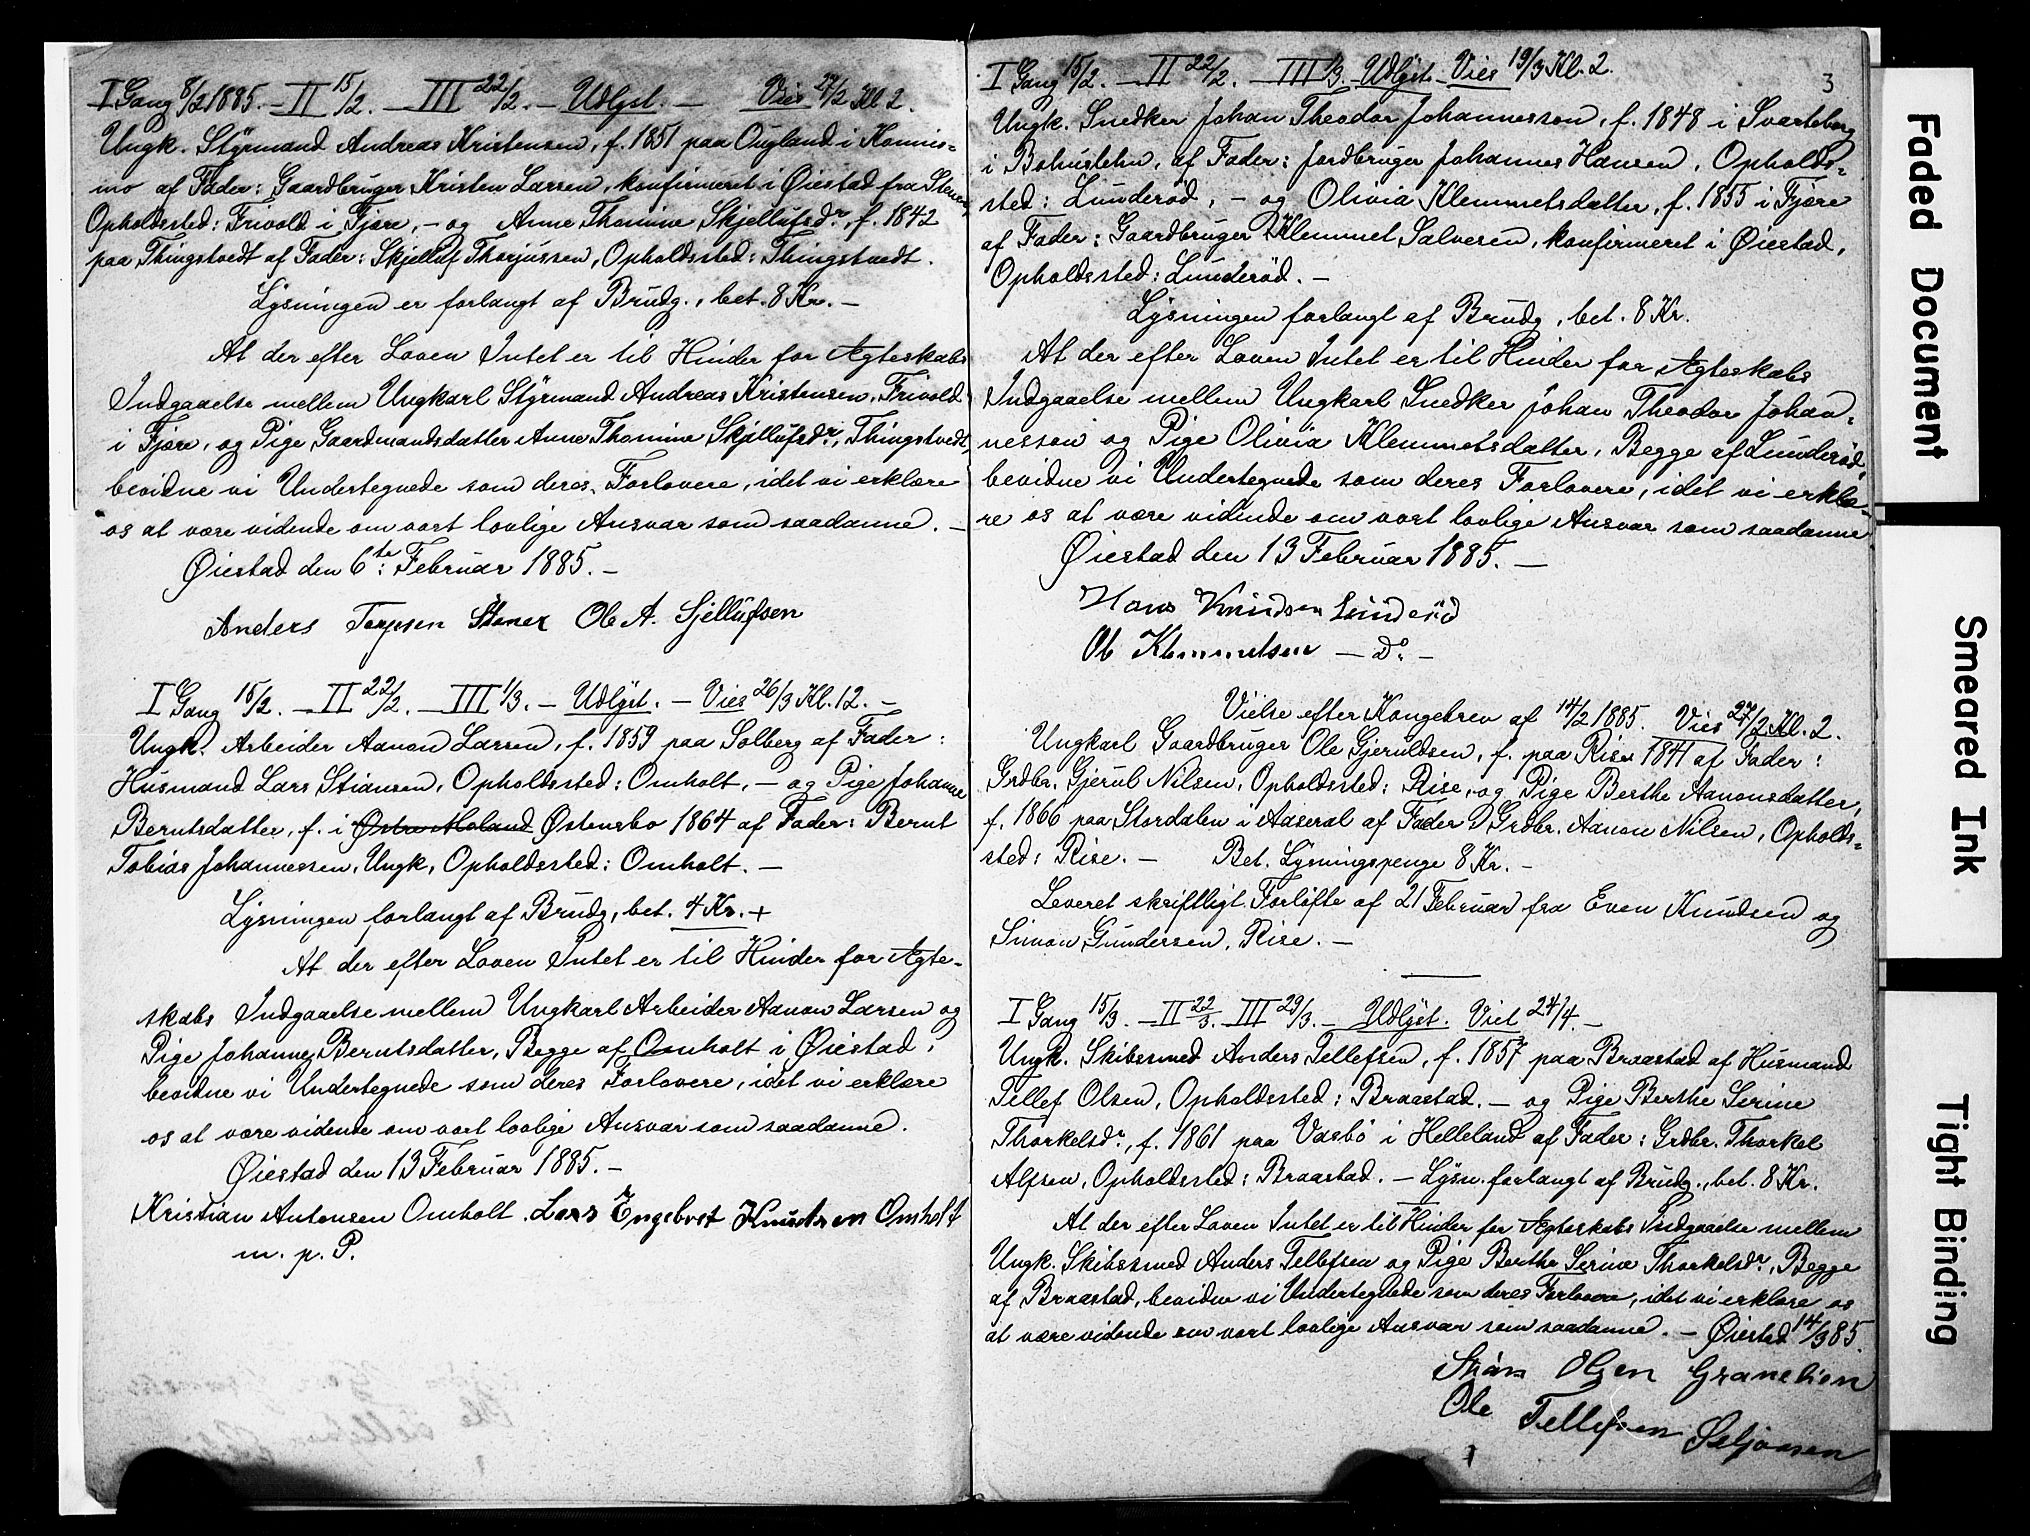 I Gang 8/2 1885. – II 15/2. – III 22/2. – Udlyst. – Vies 27/2 Kl 2.
Ungk. Styrmand Andreas Kristensen, f. 1851 paa Ougland i Homnis=
mo af Fader: Gaardbruger Kristen Larsen, konfirmeret i Øiestad fra
Opholdssted: Frivold i Fjære, – og Anne Thomine Skjellufsdr, f. 1842
paa Thingstvedt af Fader: Skjelluf Thorjussen, Opholdssted: Thingstvedt.
Lysningen er forlangt af Brudg., bet. 8 Kr. –
At der efter Loven Intet er til Hinder for Ægteskabs
Indgaaelse mellem Ungkarl Styrmand Andreas Kristensen, Frivold
i Fjære, og Pige Gaardmandsdatter Anne Thomine Skjellufsdr, Thingstvedt,
bevidne vi Undertegnede som deres Forlovere, idet vi erklære
os at være vidende om vort lovlige Ansvar som saadanne. –
Øiestad den 6te Februar 1885. –
Anders Terjesen Stener Ole A. Sjellufsen
I Gang 15/2. – II 22/2. – III 1/3. – Udlyst. – Vies 26/3 Kl. 12. –
Ungk. Arbeider Aanon Larsen, f. 1859 paa Solberg af Fader:
Husmand Lars Stiansen, Opholdssted: Omholt, – og Pige Johanne
Berntsdatter, f. i Østre Moland Østensbo 1864 af Fader: Bernt
Tobias Johannessen, Ungk, Opholdssted: Omholt. –
Lysningen forlangt af Brudg, bet. 4 Kr. +
At der efter Loven Intet er til Hinder for Ægte-
skabs Indgaaelse mellem Ungkarl Arbeider Aanon Larsen og
Pige Johanne Berntsdatter, Begge af Omholt i Øiestad,
bevidne vi Undertegnede som deres Forlovere, idet vi erklære
os at være vidende om vort lovlige Ansvar som saadanne.
Øiestad den 13 Februar 1885. –
Kristian Antonsen Omholt. Lars Engebret Knudsen Omholt
m. p. P.
3
I Gang 15/2. – II 22/2. – III 1/3. Udlyst – Vies 19/3 Kl. 2.
Ungk. Snedker Johan Theodor Johannesson, f. 1848 i Svarteborg
i Bohuslehn, af Fader: Jordbruger Johannes Hansen, Opholds=
sted: Lunderød, – og Olivia Klemmetsdatter, f. 1855 i Fjære
af Fader: Gaardbruger Klemmet Salvesen, konfirmeret i Øiestad,
Opholdssted: Lunderød. –
Lysningen forlangt af Brudg, bet. 8 Kr.
At der efter Loven Intet er til Hinder for Ægteskabs
Indgaaelse mellem Ungkarl Snedker Johan Theodor Johan=
nesson og Pige Olivia Klemmetsdatter, Begge af Lunderød,
bevidne vi Undertegnede som deres Forlovere, idet vi erklæ-
re os at være vidende om vort lovlige Ansvar som saadanne
Øiestad den 13 Februar 1885. –
Hans Knudsen Lunderød
Ole Klemmetsen – Do –
Vielse efter Kongebrev af 14/2 1885. Vies 27/2 Kl. 2.
Ungkarl Gaardbruger Ole Gjeruldsen, f. paa Rise 1841 af Fader:
Grdbr. Gjerul Nilsen, Opholdssted: Rise, og Pige Berthe Aanonsdatter,
f. 1866 paa Stordalen i Aaseral af Fader Grdbr. Aanon Nilsen, Opholds=
sted: Rise. – Bet. Lysningspenge 8 Kr. –
Leveret skriftligt Forløfte af 21 Februar fra Even Knudsen og
Simon Gundersen, Rise. –
I Gang 15/3. – II 22/3. III 29/3. – Udlyst. Viet 24/4. –
Ungk. Skibssmed Anders Tellefsen, f. 1857 paa Braastad af Husmand
Tellef Olsen, Opholdssted: Braastad. – og Pige Berthe Serine
Thorkelsdr, f. 1861 paa Vasbø i Helleland af Fader: Grdbr. Thorkel
Alfsen, Opholdssted: Braastad. – Lysn. forlangt af Brudg., bet. 8 Kr.
At der efter Loven Intet er til Hinder for Ægteskabs Indgaaelse mellem
Ungk. Skibssmed Anders Tellefsen og Pige Berthe Serine Thorkelsdr, Begge
af Braastad, bevidne vi Undertegnede som deres Forlovere, idet vi erklære os
at være vidende om vort lovlige Ansvar som saadanne. – Øiestad 14/3 85.
Olsen
Ole Tellefsen
Faded Document
Smeared Ink
Tight Binding